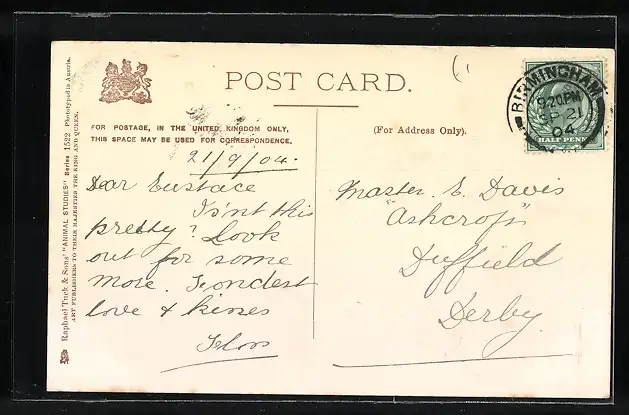 POST CARD.
FOR POSTAGE, IN THE UNITED KINGDOM ONLY,
THIS SPACE MAY BE USED FOR CORRESPONDENCE.
(For Address Only).
21/9/04.
Dear Eustace
Is'nt this
pretty? Look
out for some
more. Fondest
love & kisses
Master. E. Davis
"Ashcroft"
Duffield
Derby.
BIRMINGHAM
9.20PM
SP 21
04
HALF PENNY
Raphael Tuck & Sons' "ANIMAL STUDIES" Series 1522. Phototyped in Austria.
ART PUBLISHERS TO THEIR MAJESTIES THE KING AND QUEEN.